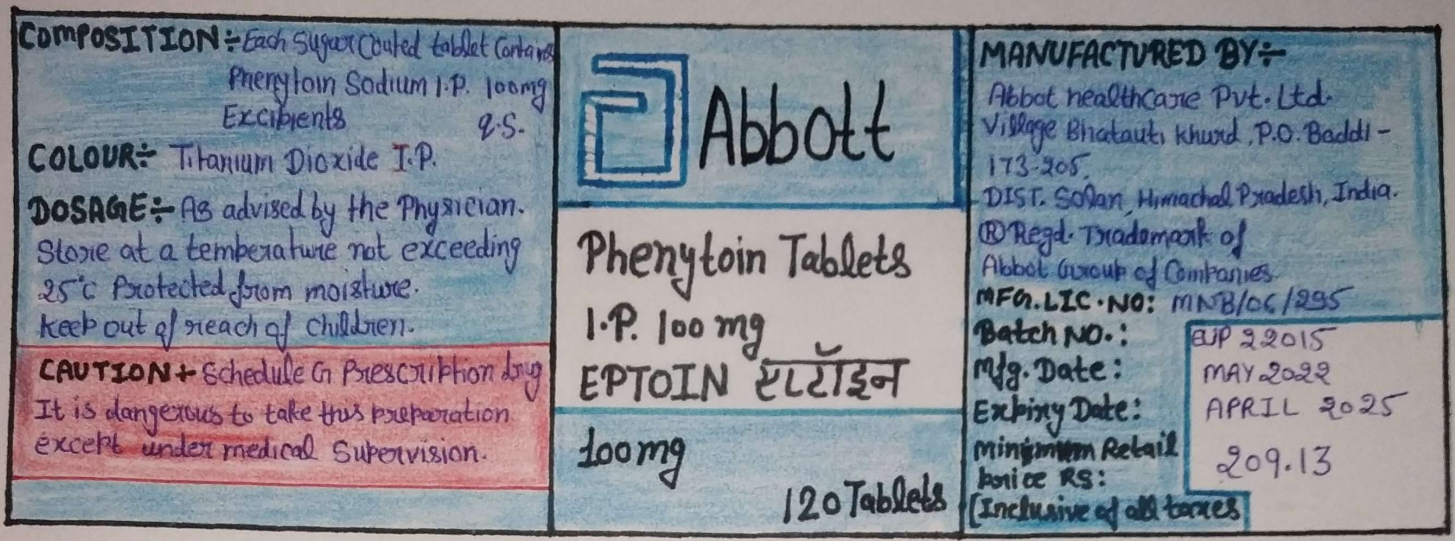 COMPOSITION÷ Each Sugar Coated tablet Contains
Phenytoin Sodium I.P. 100mg
Excipients q.s.
COLOUR÷ Titanium Dioxide I.P.
DOSAGE÷ As advised by the Physician.
Store at a temperature not exceeding
25°C Protected from moisture.
keep out of reach of children.
CAUTION÷ Schedule G Prescription drug
It is dangerous to take this preparation
except under medical Supervision.
Abbott
Phenytoin Tablets
I.P. 100 mg
EPTOIN एप्टॉइन
100mg
120 Tablets
MANUFACTURED BY÷
Abbot healthCare Pvt. Ltd.
Village Bhatauti Khurd, P.O. Baddi-
173-205.
DIST. Solan, Himachal Pradesh, India.
®Regd. Trademark of
Abbot Group of Companies
MFG.LIC.NO: MNB/06/295
Batch NO.: EJP 22015
Mfg. Date: MAY 2022
Expiry Date: APRIL 2025
Minimum Retail
price RS: 209.13
[Inclusive of all taxes]